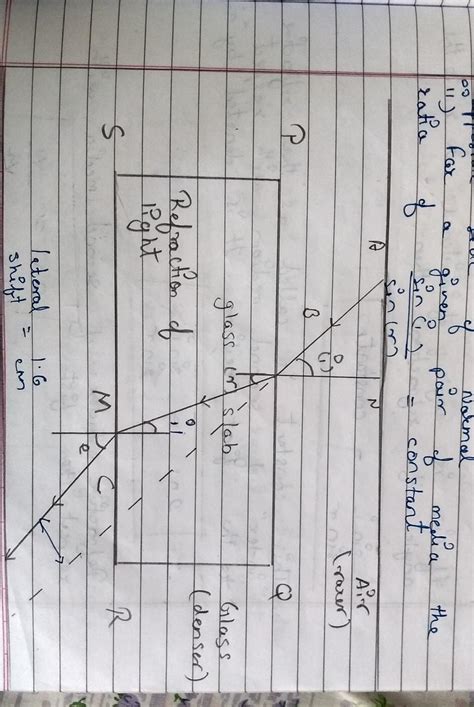 Normal
ii) for a given pair of media the
ratio of sin(i) / sin(r) = constant
A
N
Air
(rarer)
B
(i)
P
Q
glass
slab
Glass
(denser)
Refraction of
light
S
M
C
R
e
lateral = 1.6
shift cm